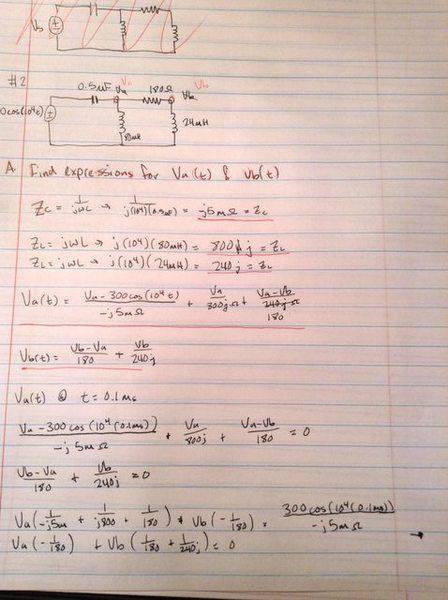 Vs
#2
0.5uF Va 180Ω Vb
Va Vb
0cos(10⁴t) 80mH 24mH
A. Find expressions for Va(t) & Vb(t)
Zc = 1/jωC → 1/j(10⁴)(0.5uF) = -j5mΩ = Zc
ZL = jωL → j(10⁴)(80mH) = 800j = ZL
ZL = jωL → j(10⁴)(24mH) = 240j = ZL
Va(t) = Va-300cos(10⁴t)/-j5mΩ + Va/800jΩ + Va-Vb/180
Vb(t) = Vb-Va/180 + Vb/240j
Va(t) @ t = 0.1ms
Va-300cos(10⁴(0.1ms))/-j5mΩ + Va/800j + Va-Vb/180 = 0
Vb-Va/180 + Vb/240j = 0
Va(1/-j5m + 1/j800 + 1/180) + Vb(-1/180) = 300cos(10⁴(0.1ms))/-j5mΩ
Va(-1/180) + Vb(1/180 + 1/240j) = 0